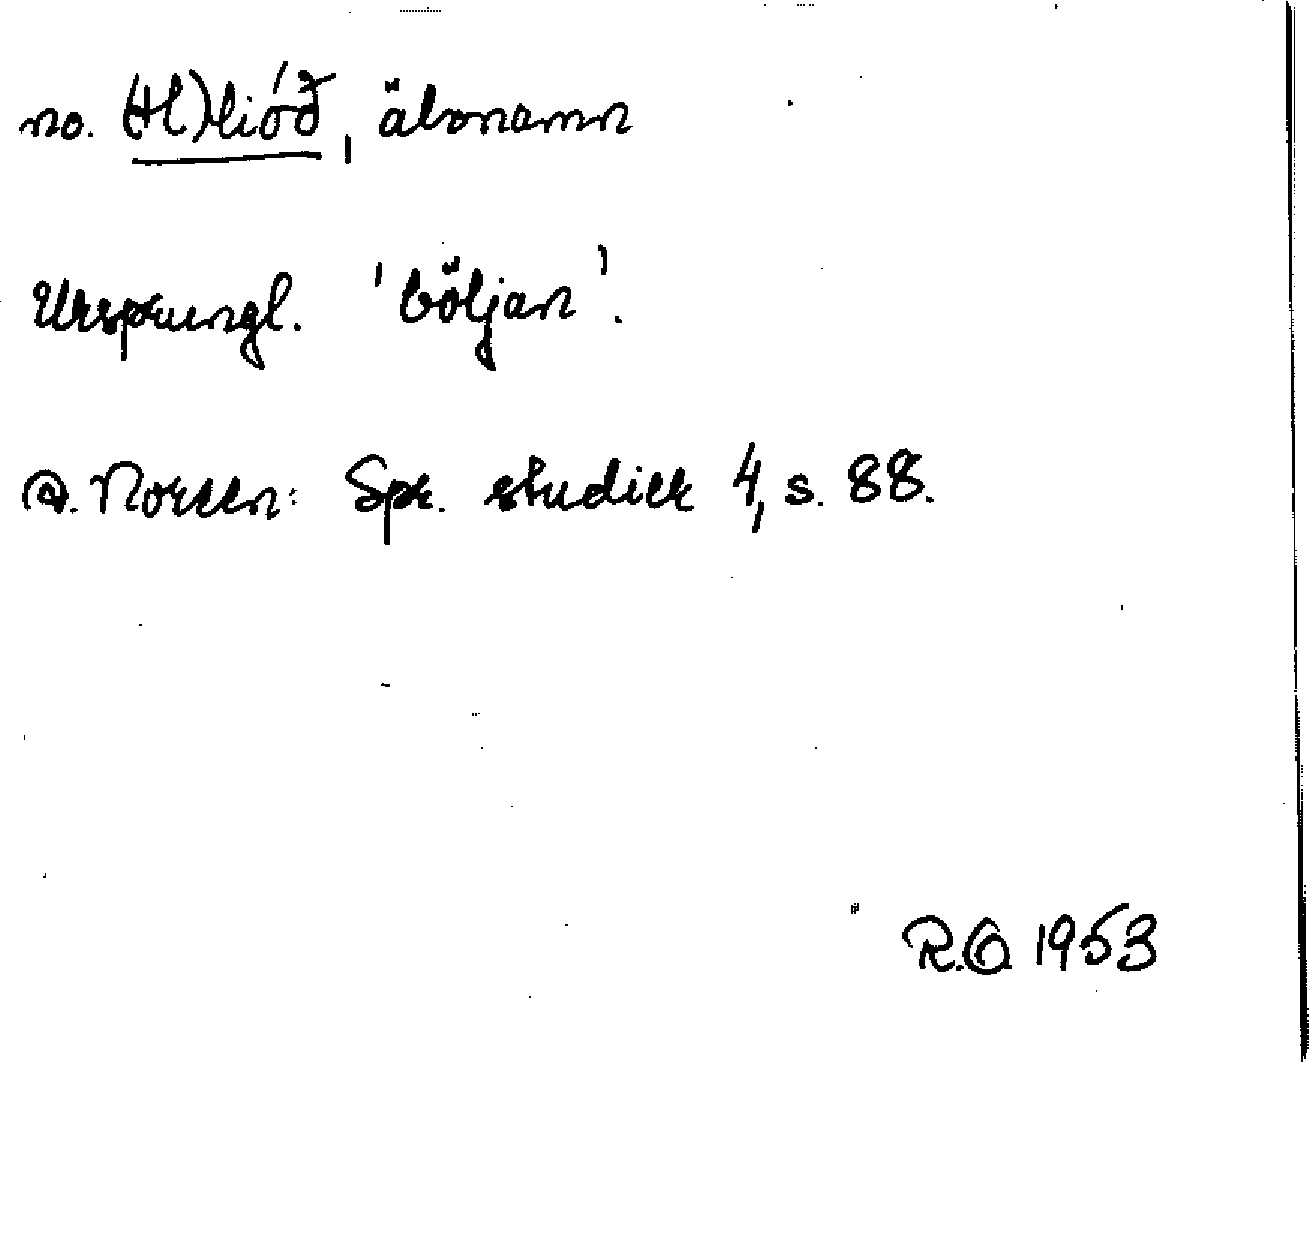 no. (H)lióð, älvnamn
Ursprungl. 'böljan'.
A. Noreen: Spr. studier 4, s. 88.
R.O 1953